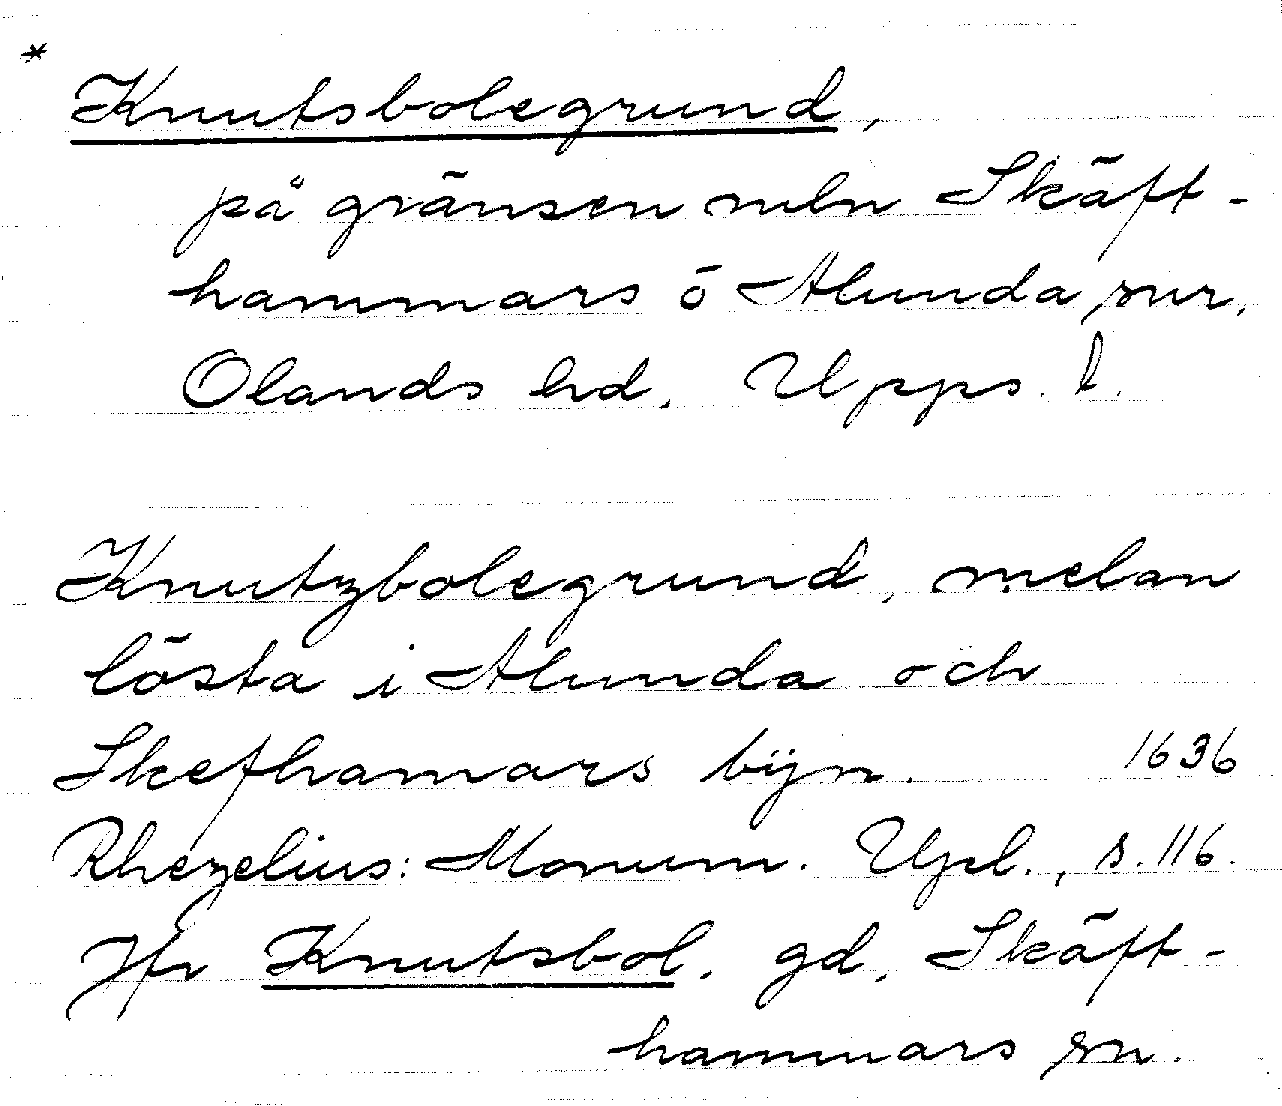 * Knutsbolegrund,
på gränsen mln Skäft-
hammars o Alunda snr,
Olands hd, Upps. l.
Knutzbolegrund, melan
lösta i Alunda och
Skefhamars bÿn. 1636
Rhezelius: Monum. Upl., s. 116.
Jfr Knutsbol, gd, Skäft-
hammars sn.